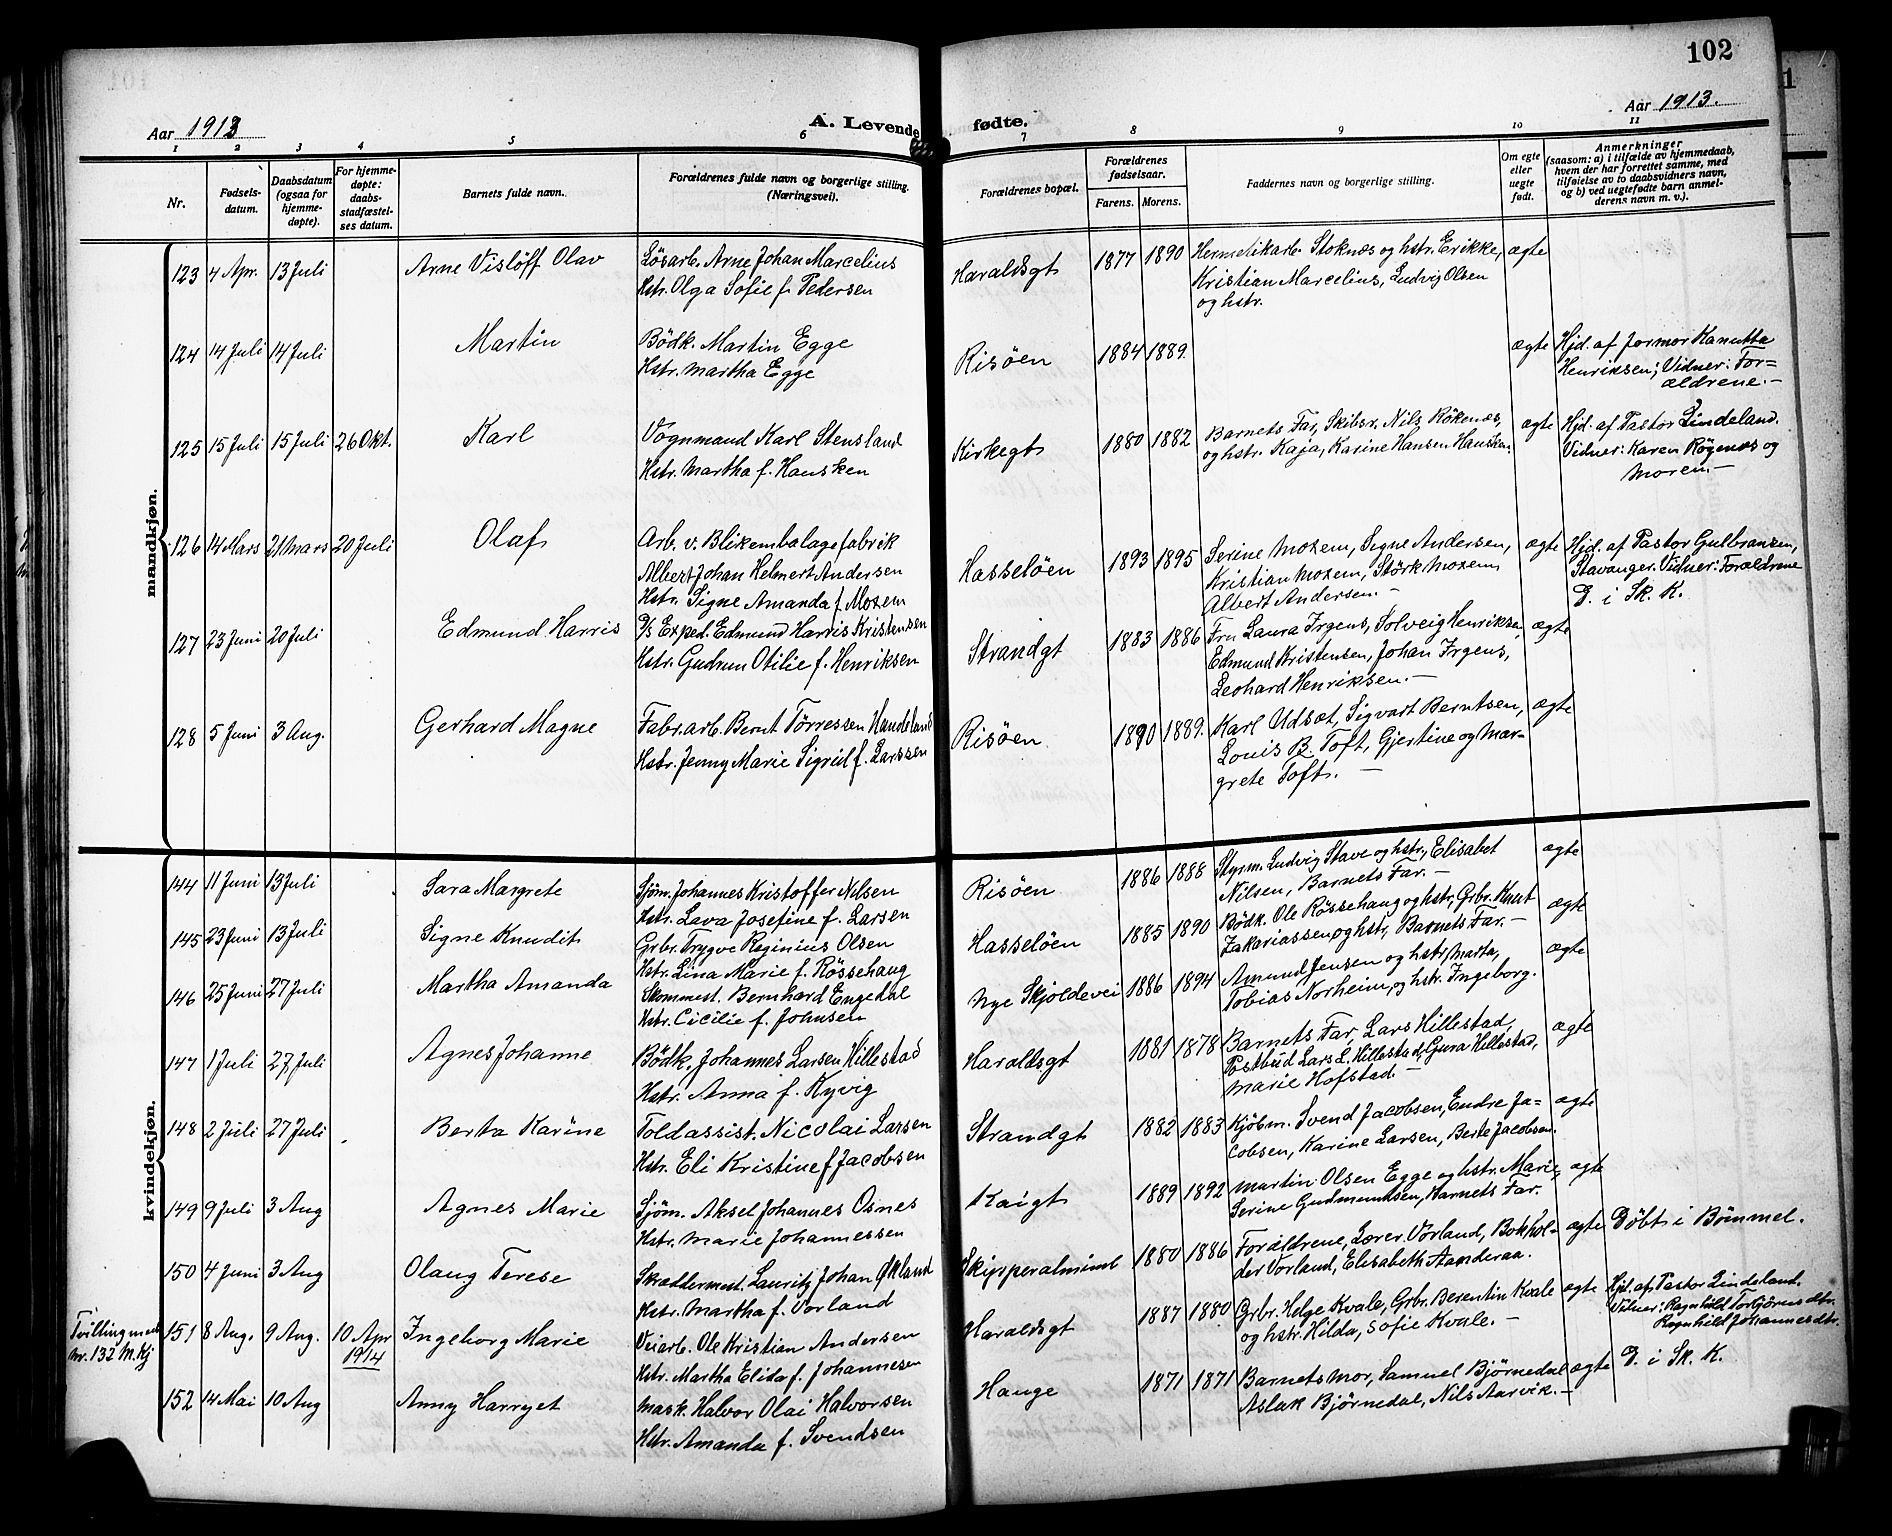 102
Aar 1913
A. Levende fødte.
Aar 1913.
1 2 3 4 5 6 7 8 9 10 11
Nr.
Fødsels-
datum.
Daabsdatum
(ogsaa for
hjemme-
døpte).
For hjemme-
døpte:
daabs-
stadfæstel-
ses datum.
Barnets fulde navn.
Forældrenes fulde navn og borgerlige stilling.
(Næringsvei).
Forældrenes bopæl.
Forældrenes
fødselsaar.
Farens. Morens.
Faddernes navn og borgerlige stilling.
Om egte
eller
uegte
født.
Anmerkninger
(saasom: a) i tilfælde av hjemmedaab,
hvem der har forrettet samme, med
tilføielse av to daabsvidners navn,
og b) ved uegtefødte barn anmel-
derens navn m. v.).
mandkjøn.
123 4 Apr. 13 Juli
Arne Vislöff Olav
Løsarb. Arne Johan Marcelius
Hstr. Olga Sofie f. Pedersen
Haraldsgt 1877 1890
Hermetikarb. Stoknes og hstr. Erikke,
Kristian Marcelius, Ludvig Olsen
og hstr.
ægte
124 14 Juli 14 Juli
Martin
Bödk. Martin Egge
Hstr. Martha Egge
Risöen 1884 1889.
ægte
Hjd. af farmor Kanutta
Henriksen; Vidner: For-
ældrene.-
125 15 Juli 15 Juli 26 Okt.
Karl
Vognmand Karl Stensland
Hstr. Martha f. Hansken
Kirkegt 1880 1882
Barnets Far, Skibsr. Nils Rökenes,
og hstr. Kaja, Karine Hansen Hansken
ægte
Hjd. af Pastor Lindeland.
Vidner: Karen Rögenes og
Moren.-
126 14 Mars 21 Mars 20 Juli
Olaf
Arb. v. Blikembalagefabrik
Albert Johan Helmert Andersen
Hstr. Signe Amanda f. Mozem
Hasselöen 1893 1895
Serine Mozem, Signe Andersen,
Kristian Mozem, Störk Mozem,
Albert Andersen.-
ægte
Hjd. af Pastor Gulbranzen,
Stavanger. Vidner: Forældrene
D. i Sk. K.
127 23 Juni 20 Juli
Edmund Harris
D/S Exped. Edmund Harris Kristensen
Hstr. Gudrun Otilie f. Henriksen
Strandgt 1883 1886
Fru Laura Irgens, Solveig Henriksen,
Edmund Kristensen, Johan Irgens,
Leohard Henriksen.-
ægte
128 5 Juni 3 Aug.
Gerhard Magne
Fabr.arb. Bernt Törressen Handeland
Hstr. Jenny Marie Sigrid f. Larssen
Risöen 1890 1889.
Karl Udsæt, Sigvart Berntsen,
Louis B. Toft, Gjertine og Mar-
grete Toft.-
ægte
kvindekjøn.
144 11 Juni 13 Juli
Sara Margrete
Sjöm. Johannes Kristoffer Nilsen
Hstr. Lava Josefine f. Larsen
Risöen 1886 1888
Styrm. Ludvig Stave og hstr., Elisabet
Nilsen, Barnets Far.-
ægte
145 23 Juni 13 Juli
Signe Knudit
Grbr. Trygve Reginius Olsen
Hstr. Lina Marie f. Rössehaug
Hasselöen 1885 1890
Bödk. Ole Rössehaug og hstr., Grbr. Knut
Zakariassen og hstr., Barnets Far.-
ægte
146 25 Juni 27 Juli
Martha Amanda
Skommest. Bernhard Engedal
Hstr. Cicilie f. Johnsen
Nye Skjoldevei 1886 1894
Amund Jensen og hstr. Marta,
Tobias Norheim, og hstr. Ingeborg.
ægte
147 1 Juli 27 Juli
Agnes Johanne
Bödk. Johannes Larsen Hillestad
Hstr. Anna f. Kyvig
Haraldsgt 1881 1878
Barnets Far, Lars Hillestad,
Postbud Lars L. Hillestad, Gura Hillestad,
Marie Hofstad.-
ægte
148 2 Juli 27 Juli
Berta Karine
Toldassist. Nicolai Larsen
Hstr. Eli Kristine f. Jacobsen
Strandgt 1882 1883
Kjöbm. Svend Jacobsen, Endre Ja-
cobsen, Karine Larsen, Berte Jacobsen.
ægte
149 9 Juli 3 Aug
Agnes Marie
Sjöm. Aksel Johannes Osnes
Hstr. Marie Johannessen
Kaigt 1889 1892
Martin Olsen Egge og hstr. Marie,
Serine Gudmundsen, Barnets Far.
ægte
150 4 Juni 3 Aug
Olaug Terese
Skræddermest. Lauritz Johan Økland
Hstr. Martha f. Vorland
Skipperalmint 1880 1886
Forældrene, Lærer Vorland, Bokhol-
der Vorland, Elisabeth Aanderaa.
ægte
Döbt i Bömmel.
Tvilling med
Nr. 132 M.kj
151 8 Aug. 9 Aug. 10 Apr
1914
Ingeborg Marie
Veiarb. Ole Kristian Andersen
Hstr. Martha Elida f. Johannesen
Haraldsgt 1887 1880
Grbr. Helge Kvale, Grbr. Berentin Kvale
og hstr. Hilda, Sofie Kvale.-
ægte
Hjd. af Pastor Lindeland.
Vidner: Ragnhild Torbjörnsdtr.
Ragnhild Johannesdtr.
152 14 Mai 10 Aug
Anny Harryet
Mask. Halvor Olai Halvorsen
Hstr. Amanda f. Svendsen
Hauge 1871 1871
Barnets Mor, Samuel Bjørnedal
Aslak Bjørnedal, Nils Aarvik.-
ægte
D. i Sk. K.